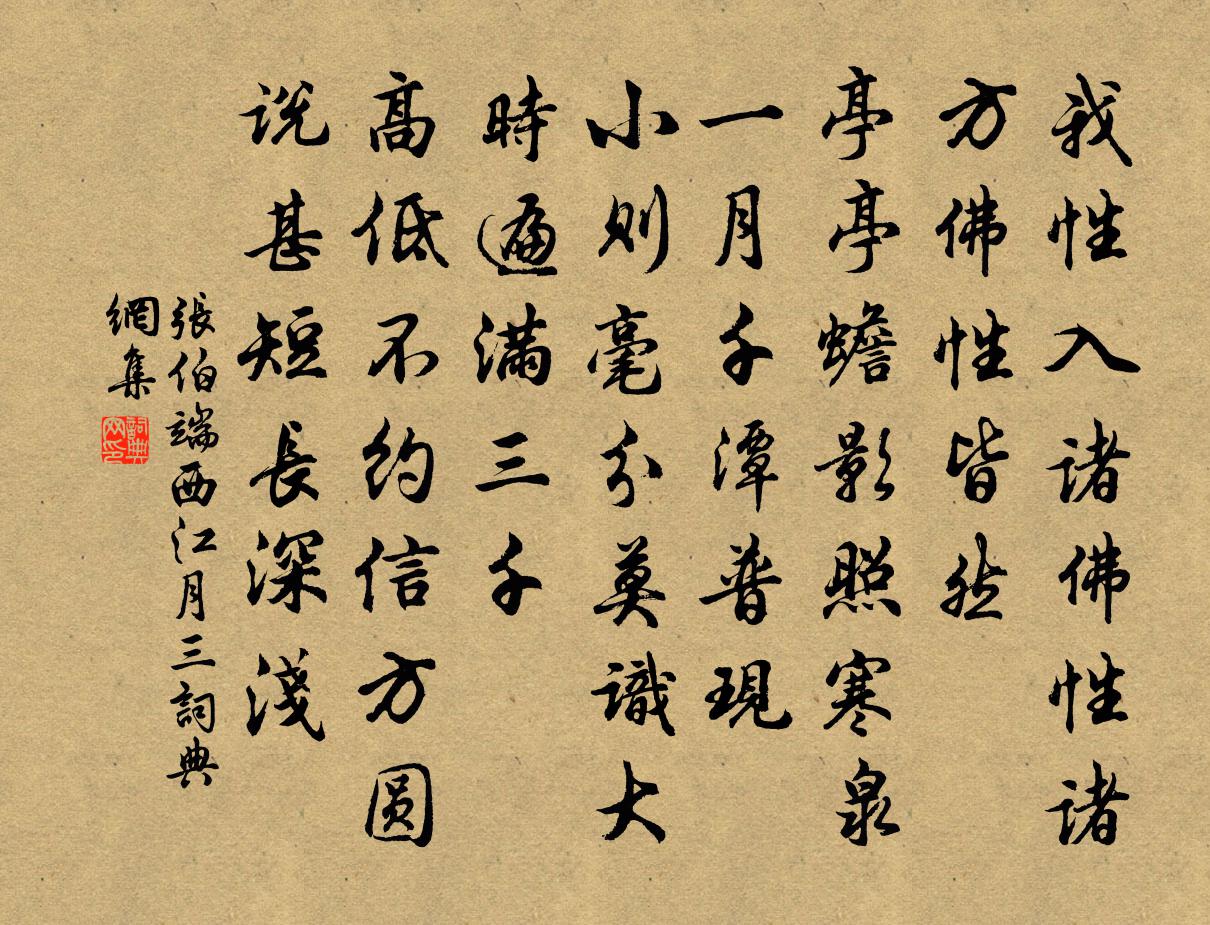 我性入诸佛性诸
方佛性皆然
亭亭蟾影照寒泉
一月千潭普現
小则毫分莫識大
時遍满三千
高低不约信方圆
说甚短長深淺
張伯端西江月三詞典
網集
詞典网印